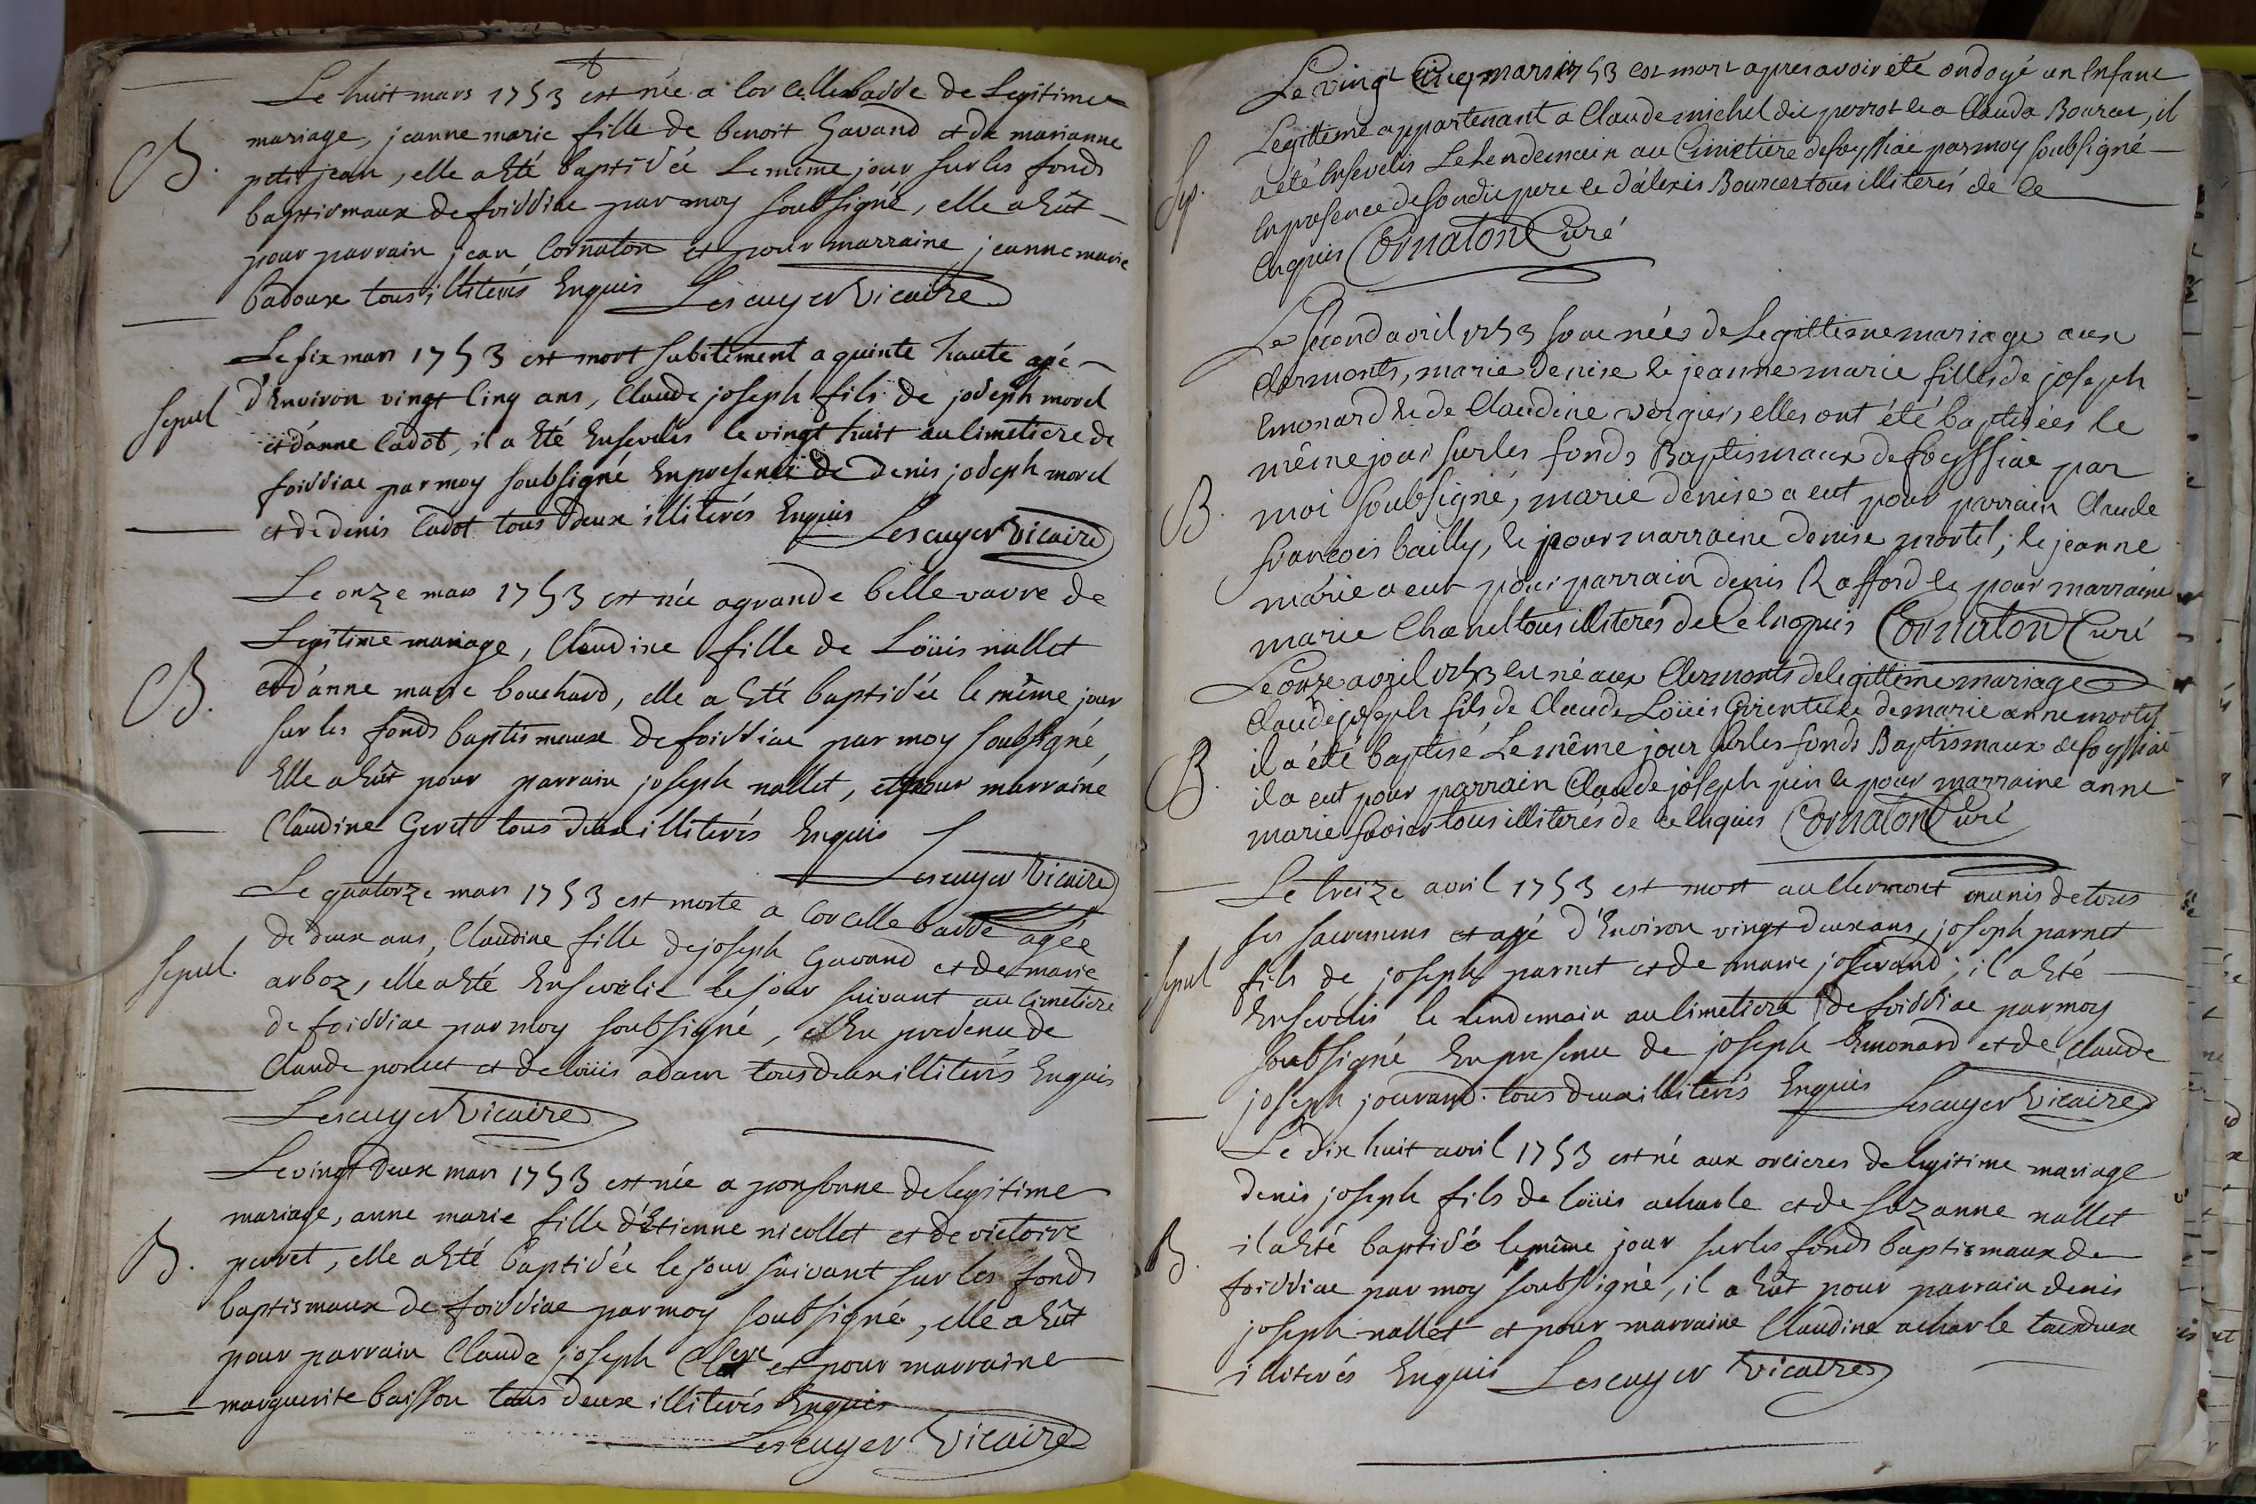 Le huit mars 1753 est née a Corcellebasse de Legitime
B. mariage, jeanne marie fille de benoit Gavand et de marianne
petitjean, elle a Eté baptisée Le même jour sur les fonds
baptismaux de foissiac par moy soubsigné, elle a Eût
pour parrain jean Cornaton et pour marraine jeanne marie
badoux tous illiterés Enquis Lescuyer Vicaire
Le six mars 1753 est mort subitement a quinte haute agé
sepul d'Environ vingt Cinq ans, Claude joseph fils de joseph morel
et d'anne Cadot, il a Eté Ensevelis le vingt huit au Cimetiere de
foissiac par moy soubsigné En presence de denis joseph morel
et de denis Cadot tous deux illiterés Enquis Lescuyer Vicaire
Le onze mars 1753 est née a grande belle vavre de
Legitime mariage, Claudine fille de Loüis nallet
B. et d'anne marie bouchard, elle a Eté baptisée le même jour
sur les fonds baptismaux de foissiac par moy soubsigné
Elle a Eût pour parrain joseph nallet, et pour marraine
Claudine Geret tous deux illiterés Enquis
Lescuyer Vicaire
Le quatorze mars 1753 est morte a Corcelle basse agée
de deux ans, Claudine fille de joseph Gavand et de marie
sepul. arboz, elle a Eté Ensevelie le jour suivant au Cimetiere
de foissiac par moy soubsigné, et En presence de
Claude poncet et de loüis adam tous deux illiterés Enquis
Lescuyer Vicaire
Le vingt deux mars 1753 est née a ponsonne de legitime
mariage, anne marie fille d'Etienne nicollet et de victoire
B. perret, elle a Eté baptisée le jour suivant sur les fonds
baptismaux de foissiac par moy soubsigné, elle a Eût
pour parrain Claude joseph Clerc et pour marraine
marguerite buisson tous deux illiterés Enquis
Lescuyer Vicaire
Le vingt Cinq mars 1753 est mort apres avoir été ondoyé un Enfant
Legittime appartenant a Claude michel dit perrot & a Clauda Bourcet, il
Sep. a été Ensevelis Le Lendemain au Cimetiere de foyssiac par moy soubsigné
En presence de son dit pere & d'alexis Bourcet tous illiterés de Ce
Enquis Cornaton Curé
Le second avril 1753 sont nées de Legittime mariage aux
Clermonts, marie denise & jeanne marie filles de joseph
Emonard & de Claudine vergier, elles ont été baptisées le
même jour sur les fonds Baptismaux de foyssiac par
B. moi soubsigné, marie denise a eut pour parrain Claude
francois bailly, & pour marraine denise mortel; & jeanne
marie a eut pour parrain denis Rafford & pour marraine
marie Chanel tous illiterés de Ce Enquis Cornaton Curé
Le onze avril 1753 est né aux Clermonts de legittime mariage
Claude joseph fils de Claude Loüis & de marie anne mortel
B. il a été baptisé Le même jour sur les fonds Baptismaux de foyssiac
il a eut pour parrain Claude joseph pin & pour marraine anne
marie favier tous illiterés de ce Enquis Cornaton Curé
Le treize avril 1753 est mort au Clermont munis de tous
ses sacremens et agé d'Environ vingt deux ans, joseph parnet
sepul fils de joseph parnet et de marie joserand; il a Eté
Ensevelis le lendemain au Cimetiere de foissiac par moy
soubsigné En presence de joseph Emonard et de Claude
joseph jouvand. tous deux illiterés Enquis Lescuyer Vicaire
Le dix huit avril 1753 est né aux orcieres de legitime mariage
denis joseph fils de loüis acharle et de suzanne nallet
B. il a Eté baptisé le même jour sur les fonds baptismaux de
foissiac par moy soubsigné, il a Eût pour parrain denis
joseph nallet et pour marraine Claudine acharle tous deux
illiterés Enquis Lescuyer Vicaire